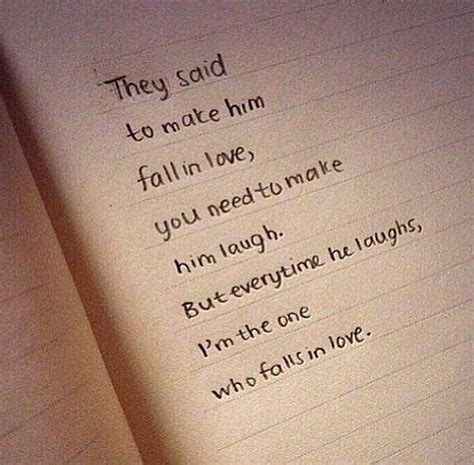 They said
to make him
fall in love,
you need to make
him laugh.
But everytime he laughs,
I'm the one
who falls in love.